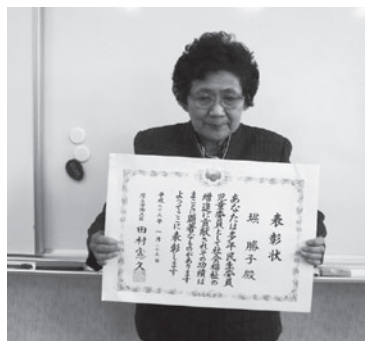 表彰状
堀 勝子 殿
あなたは多年民生委員
児童委員として社会福祉の
増進に貢献されその功績は
まことに顕著なものがあります
よってここに表彰します
平成二十五年 一月二十五日
厚生労働大臣 田村憲久